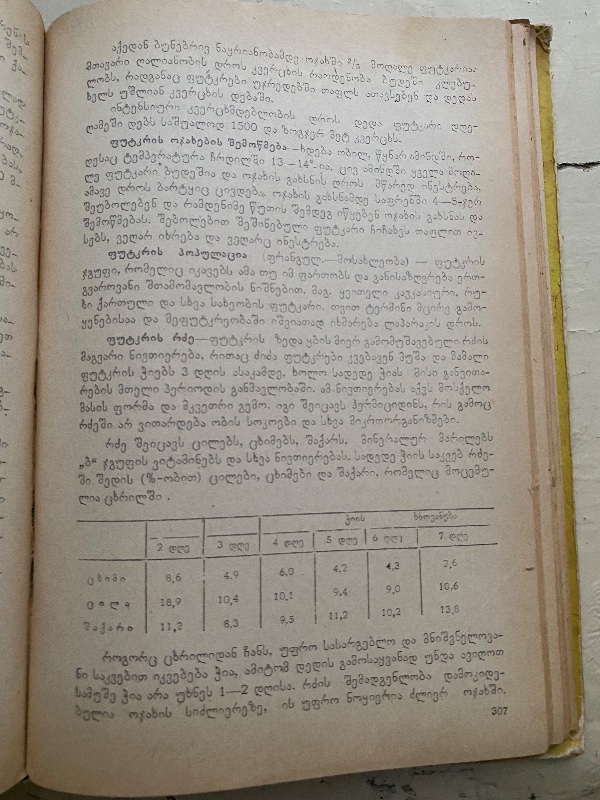 აქედან ბუნებრივ ნაყრიანობამდე ოჯახში 2/3 მოღალე ფუტკარია.
მთავარი ღალიანობის დროს კვერცხის რაოდენობა ბუდეში კლებუ-
ლობს, რადგანაც ფუტკრები უჯრედებში თაფლს ათავსებენ და დედას
ხელს უშლიან კვერცხის დებაში.
ინტენსიური კვერცხმდებლობის დროს დედა ფუტკარი დღე-
ღამეში დებს საშუალოდ 1500 და ზოგჯერ მეტ კვერცხს.
ფუტკრის ოჯახების შემოწმება—ხდება თბილ, წყნარ ამინდში, რო-
დესაც ტემპერატურა ჩრდილში 13—14°-ია. ცივ ამინდში ყველა მოღა-
ლე ფუტკარი ბუდეშია და ოჯახის გახსნის დროს მწარედ ინესტრება,
ამავე დროს ბარტყიც ცივდება. ოჯახის გახსნამდე საფრენში 4—5-ჯერ
შეუბოლებენ და რამდენიმე წუთის შემდეგ იწყებენ ოჯახის გახსნას და
შემოწმებას. შებოლებით შეშინებული ფუტკარი ჩიჩახვს თაფლით ივ-
სებს, ვეღარ იხრება და ვეღარც ინესტრება.
ფუტკრის პოპულაცია (ფრანგულ.—მოსახლეობა) — ფუტკრის
ჯგუფი, რომელიც იკავებს ამა თუ იმ ფართობს და განისაზღვრება ერთ-
გვაროვანი შთამომავლობის ნიშნებით. მაგ. ყვითელი კავკასიური, რუ-
ხი ქართული და სხვა სახეობის ფუტკარი. თვით ტერმინი მცირე გამო-
ყენებისაა და მეფუტკრეობაში იშვიათად იხმარება ლაპარაკის დროს.
ფუტკრის რძე—ფუტკრის ზედა ყბის მიერ გამომუშავებული რძის
მაგვარი ნივთიერება, რითაც ძიძა ფუტკრები კვებავენ მუშა და მამალი
ფუტკრის ჭიებს 3 დღის ასაკამდე, ხოლო სადედე ჭიას მისი განვითა-
რების მთელი პერიოდის განმავლობაში. ამ ნივთიერებას აქვს მოსქელო
მასის ფორმა და მკვეთრი გემო. იგი შეიცავს ჰერმიციდინს, რის გამოც
რძეში არ ვითარდება ობის სოკოები და სხვა მიკროორგანიზმები.
რძე შეიცავს ცილებს, ცხიმებს, შაქარს, მინერალურ მარილებს
„ბ“ ჯგუფის ვიტამინებს და სხვა ნივთიერებას. სადედე ჭიის საკვებ რძე-
ში შედის (%-ობით) ცილები, ცხიმები და შაქარი, რომელიც მოცემუ-
ლია ცხრილში.
ჭიის ხნოვანება
2 დღე 3 დღე 4 დღე 5 დღე 6 დღე 7 დღე
ცხიმი 8,6 4,9 6,0 4,2 4,3 2,6
ცილა 18,9 10,4 10,1 9,4 9,0 10,6
შაქარი 11,2 8,3 9,5 11,2 10,2 13,8
როგორც ცხრილიდან ჩანს, უფრო სასარგებლო და მნიშვნელოვა-
ნი საკვებით იკვებება ჭია, ამიტომ დედის გამოსაყვანად უნდა ავიღოთ
სამუშე ჭია არა უხნეს 1—2 დღისა. რძის შემადგენლობა დამოკიდე-
ბულია ოჯახის სიძლიერეზე, ის უფრო ნოყიერია ძლიერ ოჯახში.
307